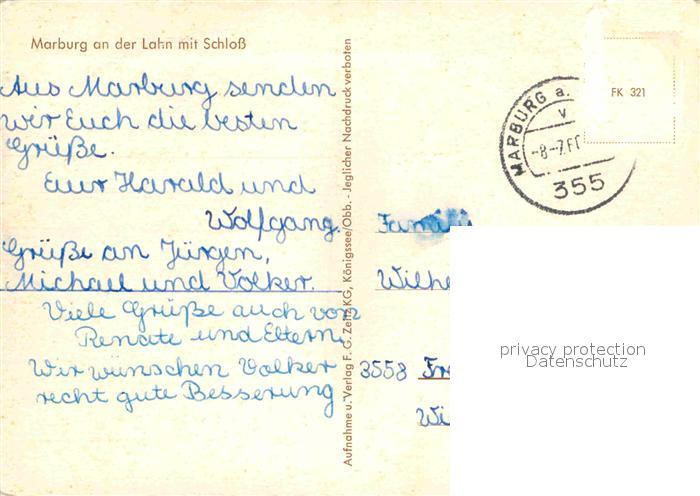 Marburg an der Lahn mit Schloß
Aus Marburg senden
wir Euch die besten
Grüße.
Eur Harald und
Wolfgang.
Grüße an Jürgen,
Michael und Volker.
Viele Grüße auch von
Renate und Eltern.
Wir wünschen Volker
recht gute Besserung
Aufnahme u. Verlag F. G. Zeitz KG, Königssee/Obb. - Jeglicher Nachdruck verboten
MARBURG a.
v
-8-7.
355
FK 321
Familie
Wilhe
3558 Fr
Wi
privacy protection
Datenschutz